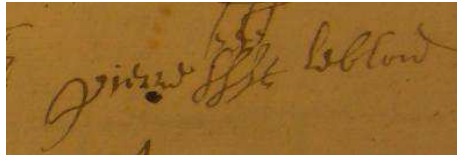 pierre leblond